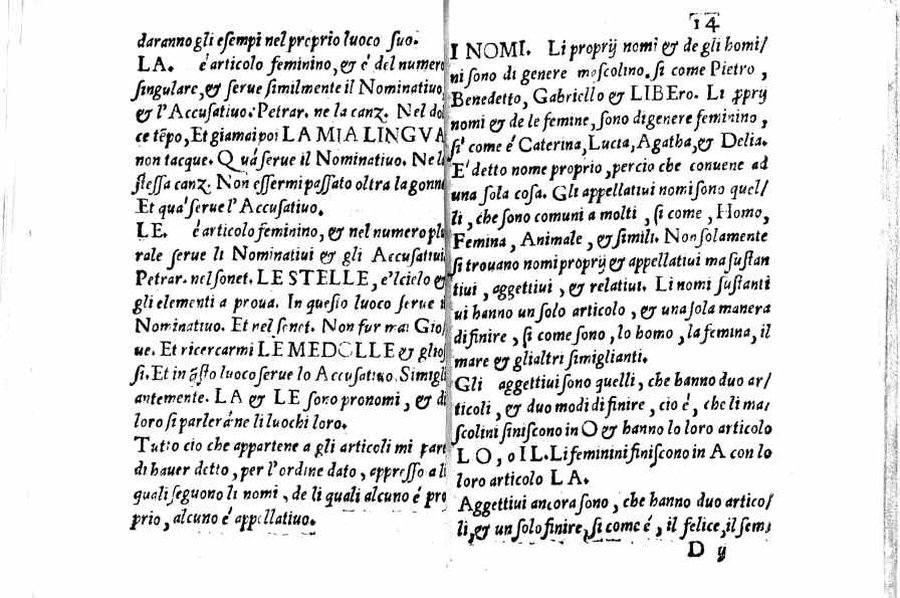 daranno gli esempi nel proprio luoco suo.
LA. é articolo feminino, & é del numero
singulare, & serue similmente il Nominatiuo,
& l'Accusatiuo. Petrar. ne la canz. Nel dol
ce tẽpo, Et giamai poi LA MIA LINGVA
non tacque. Quá serue il Nominatiuo. Nell
stessa canz. Non essermi passato oltra la gonn
Et qua' serue l'Accusatiuo.
LE. é articolo feminino, & nel numero plu
rale serue li Nominatiui & gli Accusatiui
Petrar. nel sonet. LE STELLE, e'l cielo &
gli elementi a proua. In questo luoco serue il
Nominatiuo. Et nel sonet. Non fur mai Gio
ue. Et ricercarmi LE MEDOLLE & gli os
si. Et in q̃sto luoco serue lo Accusatiuo. Simigli
antemente. LA & LE sono pronomi, & di
loro si parlerá ne li luochi loro.
Tutto cio che appartene a gli articoli mi part
di hauer detto, per l'ordine dato, appresso a li
quali seguono li nomi, de li quali alcuno é pro
prio, alcuno é appellatiuo.
14
I NOMI. Li proprij nomi & de gli homi/
ni sono di genere moscolino. si come Pietro,
Benedetto, Gabriello & LIBEro. Li ꝓprij
nomi & de le femine, sono di genere feminino,
si' come é Caterina, Lucia, Agatha, & Delia.
E' detto nome proprio, percio che conuene ad
una sola cosa. Gli appellatiui nomi sono quel/
li, che sono comuni a molti, si come, Homo,
Femina, Animale, & simili. Non solamente
si trouano nomi proprij & appellatiui ma sustan
tiui, aggettiui, & relatiui. Li nomi sustanti
ui hanno un solo articolo, & una sola manera
di finire, si come sono, lo homo, la femina, il
mare & gli altri simiglianti.
Gli aggettiui sono quelli, che hanno duo ar/
ticoli, & duo modi di finire, cio é, che li mas
scolini finiscono in O & hanno lo loro articolo
LO, o IL. Li feminini finiscono in A con lo
loro articolo LA.
Aggettiui ancora sono, che hanno duo artico/
li, & un solo finire, si come é, il felice, il sem
D ij